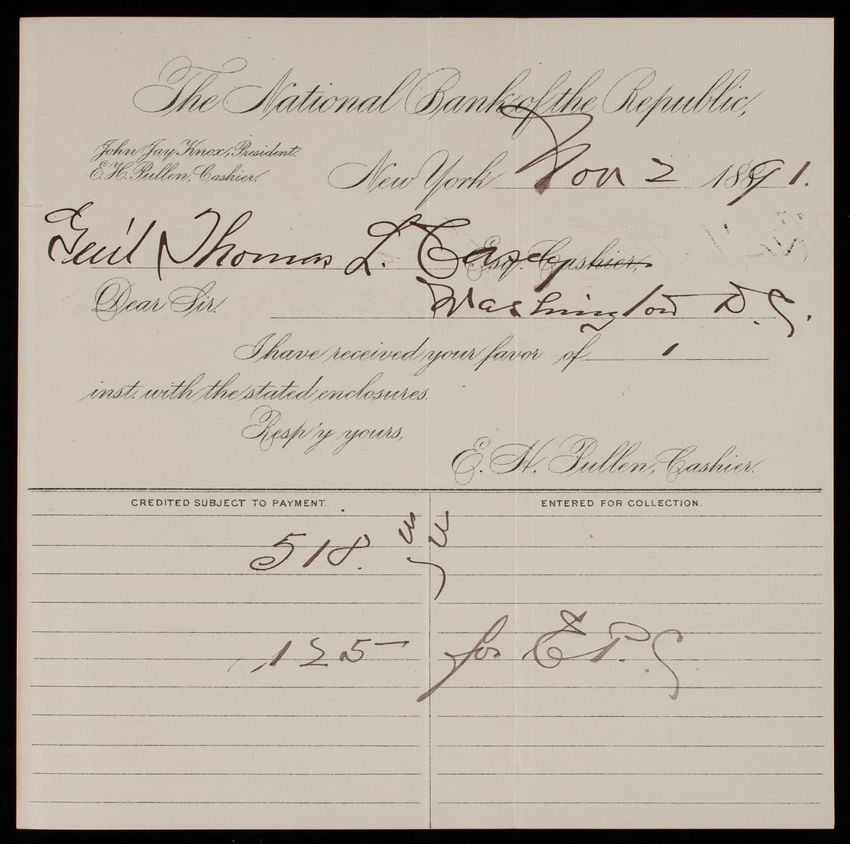 The National Bank of the Republic,
John Jay Knox, President.
E. H. Pullen, Cashier.
New York Nov 2 1891.
Gen'l Thomas L. Casey Esq. Cashier,
Washington D.C.
Dear Sir.
I have received your favor of 1
inst. with the stated enclosures.
Resp'y yours,
E. H. Pullen, Cashier.
CREDITED SUBJECT TO PAYMENT.
ENTERED FOR COLLECTION.
518.
125 — for E P. C